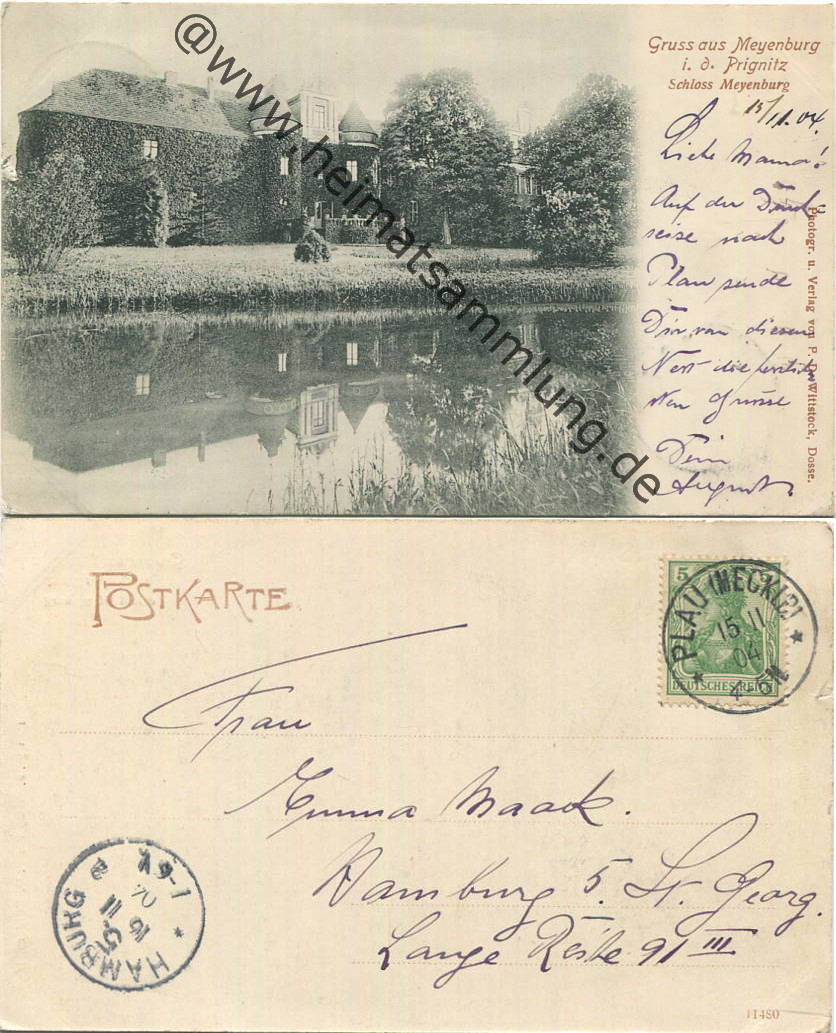 Gruss aus Meyenburg
i. d. Prignitz
Schloss Meyenburg
15/11.04.
Liebe Mama!
Auf der Durch-
reise nach
Plau sende
Dir von diesem
Nest die herzlich-
sten Grüsse
Dein
August
Photogr. u. Verlag von P. D. Wittstock, Dosse.
@www.heimatsammlung.de
POSTKARTE
5
DEUTSCHES REICH
PLAU (MECKLB)
15 11
04
4-5N
Frau
Emma Maack.
Hamburg 5. St. Georg.
Lange Reihe 91 III
HAMBURG
15 11
11480